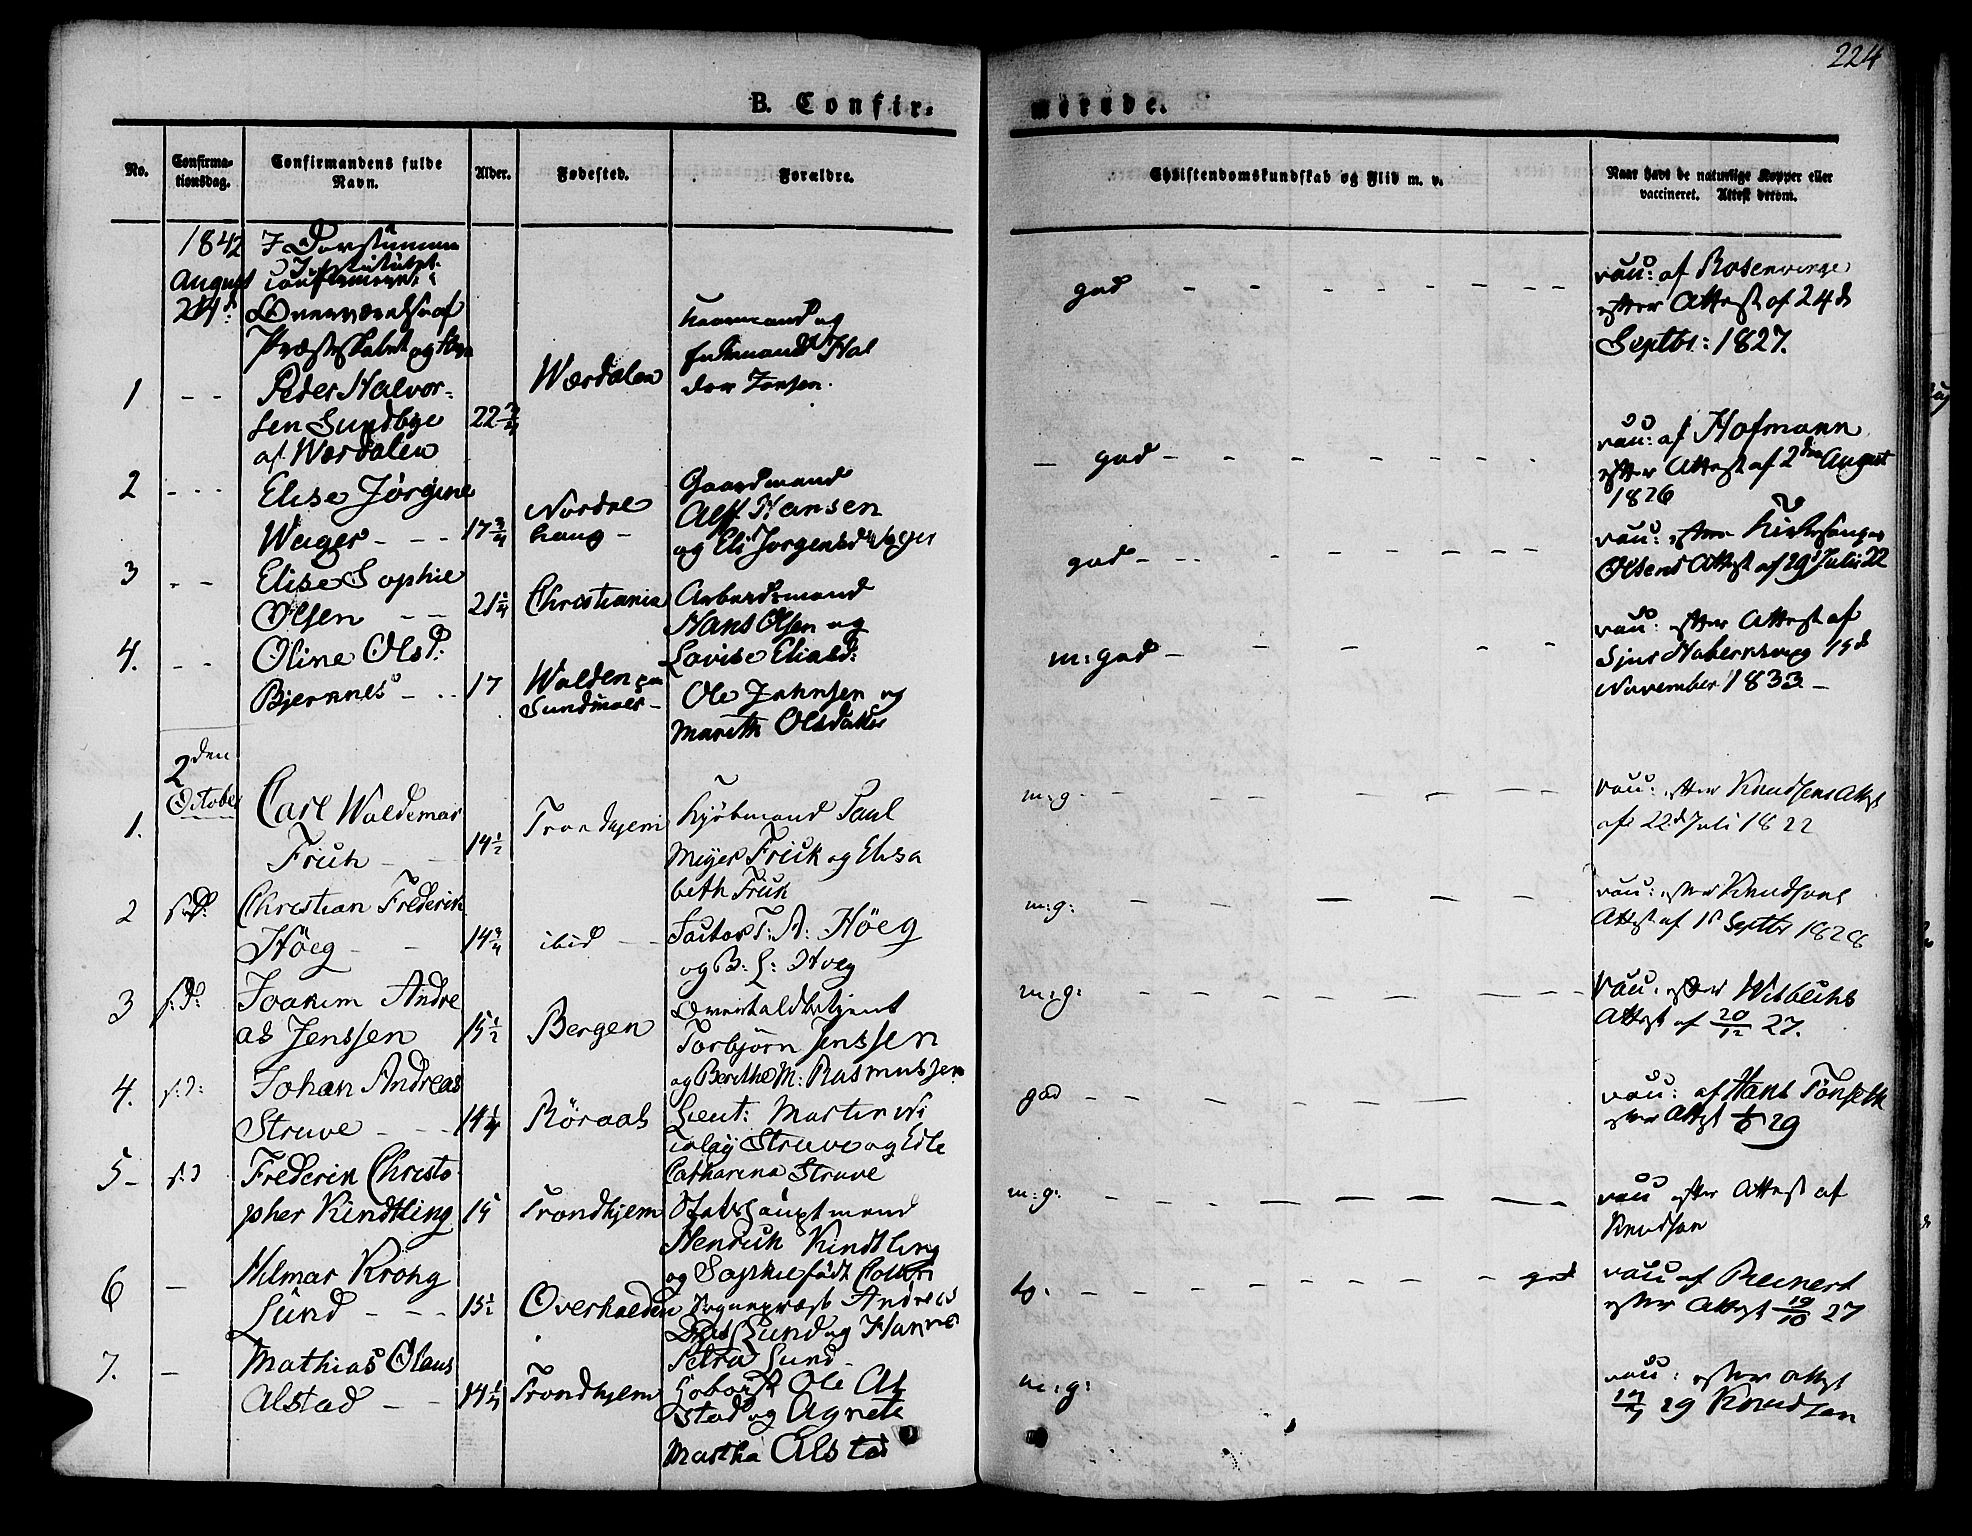 224
B. Confir-
merede.
No.
Confirma-
tionsdag.
Confirmandens fulde
Navn.
Alder.
Fødested.
Forældre.
Christendomskundskab og Flid m. v.
Naar havt de naturlige Kopper eller
vaccineret. Attest derom.
1842
August
24d:
I Døvstumme
Institutet
confirmeret i
Overværelse af
Præsteskabet og
1
Peder Halvor-
sen Sundbye
af Wærdalen
22 3/4
Wærdalen
Huusmand og
Hal
dor Jonsen.
god
vac: af Rosenvinge
efter Attest af 24d
Septbr: 1827.
2
Elise Jørgine
Wager
17 3/4
Nordre
houg
Gaardmand
Alf Hansen
og Eli Jørgensd Wager
god
vac: af Hofmann
efter Attest af 2den August
1826
3
Elise Sophie
Olsen
21 1/4
Christiania
Arbeidsmand
Hans Olsen og
Lovise Eliasd:
god
vac: efter Kirkesanger
Olsens Attest af 29d Julii 22
4.
Oline Olsd:
Bjernnes
17
Wolden paa
Sundmoer
Ole Johnsen og
Marith Olsdatter
m: god
vac: efter Attest af
Sjur 15d
November 1833
2den
October
1.
Carl Waldemar
Frich
14 1/2
Trondhjem
Kjøbmand Paul
Meyer Frich og Elisa
beth Frich
m:g.
vac: efter Knudsens Attest
af 22d Juli 18
2
s:d:
Christian Frederik
Höeg
14 3/4
ibid
Factor T: A: Höeg
og B: L: Hoeg
m:g:
vac: efter Knudsons
Attest af 15 Septbr 1828
3
s:d:
Joakim Andre
as Jenssen
15 1/2
Bergen
Overtoldbetjent
Torbjörn Jenssen
og Berithe M: Rasmussen
m:g:
vac: efter Wisbechs
Attest af 20/12 27.
4.
s:d:
Johan Andreas
Struve
14 1/4
Röraas
Lieut: Martin
Struve og Edle
Catharina Struve
god
vac: af Hans Tönseth
efter Attest 29
5
s:d
Frederik Christo
pher Kindtling
15
Trondhjem
Stabshauptmand
Henrich Kindtling
og Sophie födt Collin
m:g:
vac efter Attest af
Knudsen
6
Hilmar Krohg
Lund
15 1/2
Overhalden
Sognepræst Andreas
Lund og Hanne
Petra Lund
tg.
god
vac af Reinert
efter Attest 19/10 27
7.
Mathias Olaus
Alstad
14 1/4
Trondhjem
Ole Al
stad og Agnete
Martha Alstad
m:g:
vac: efter Attest
29 Knudsen